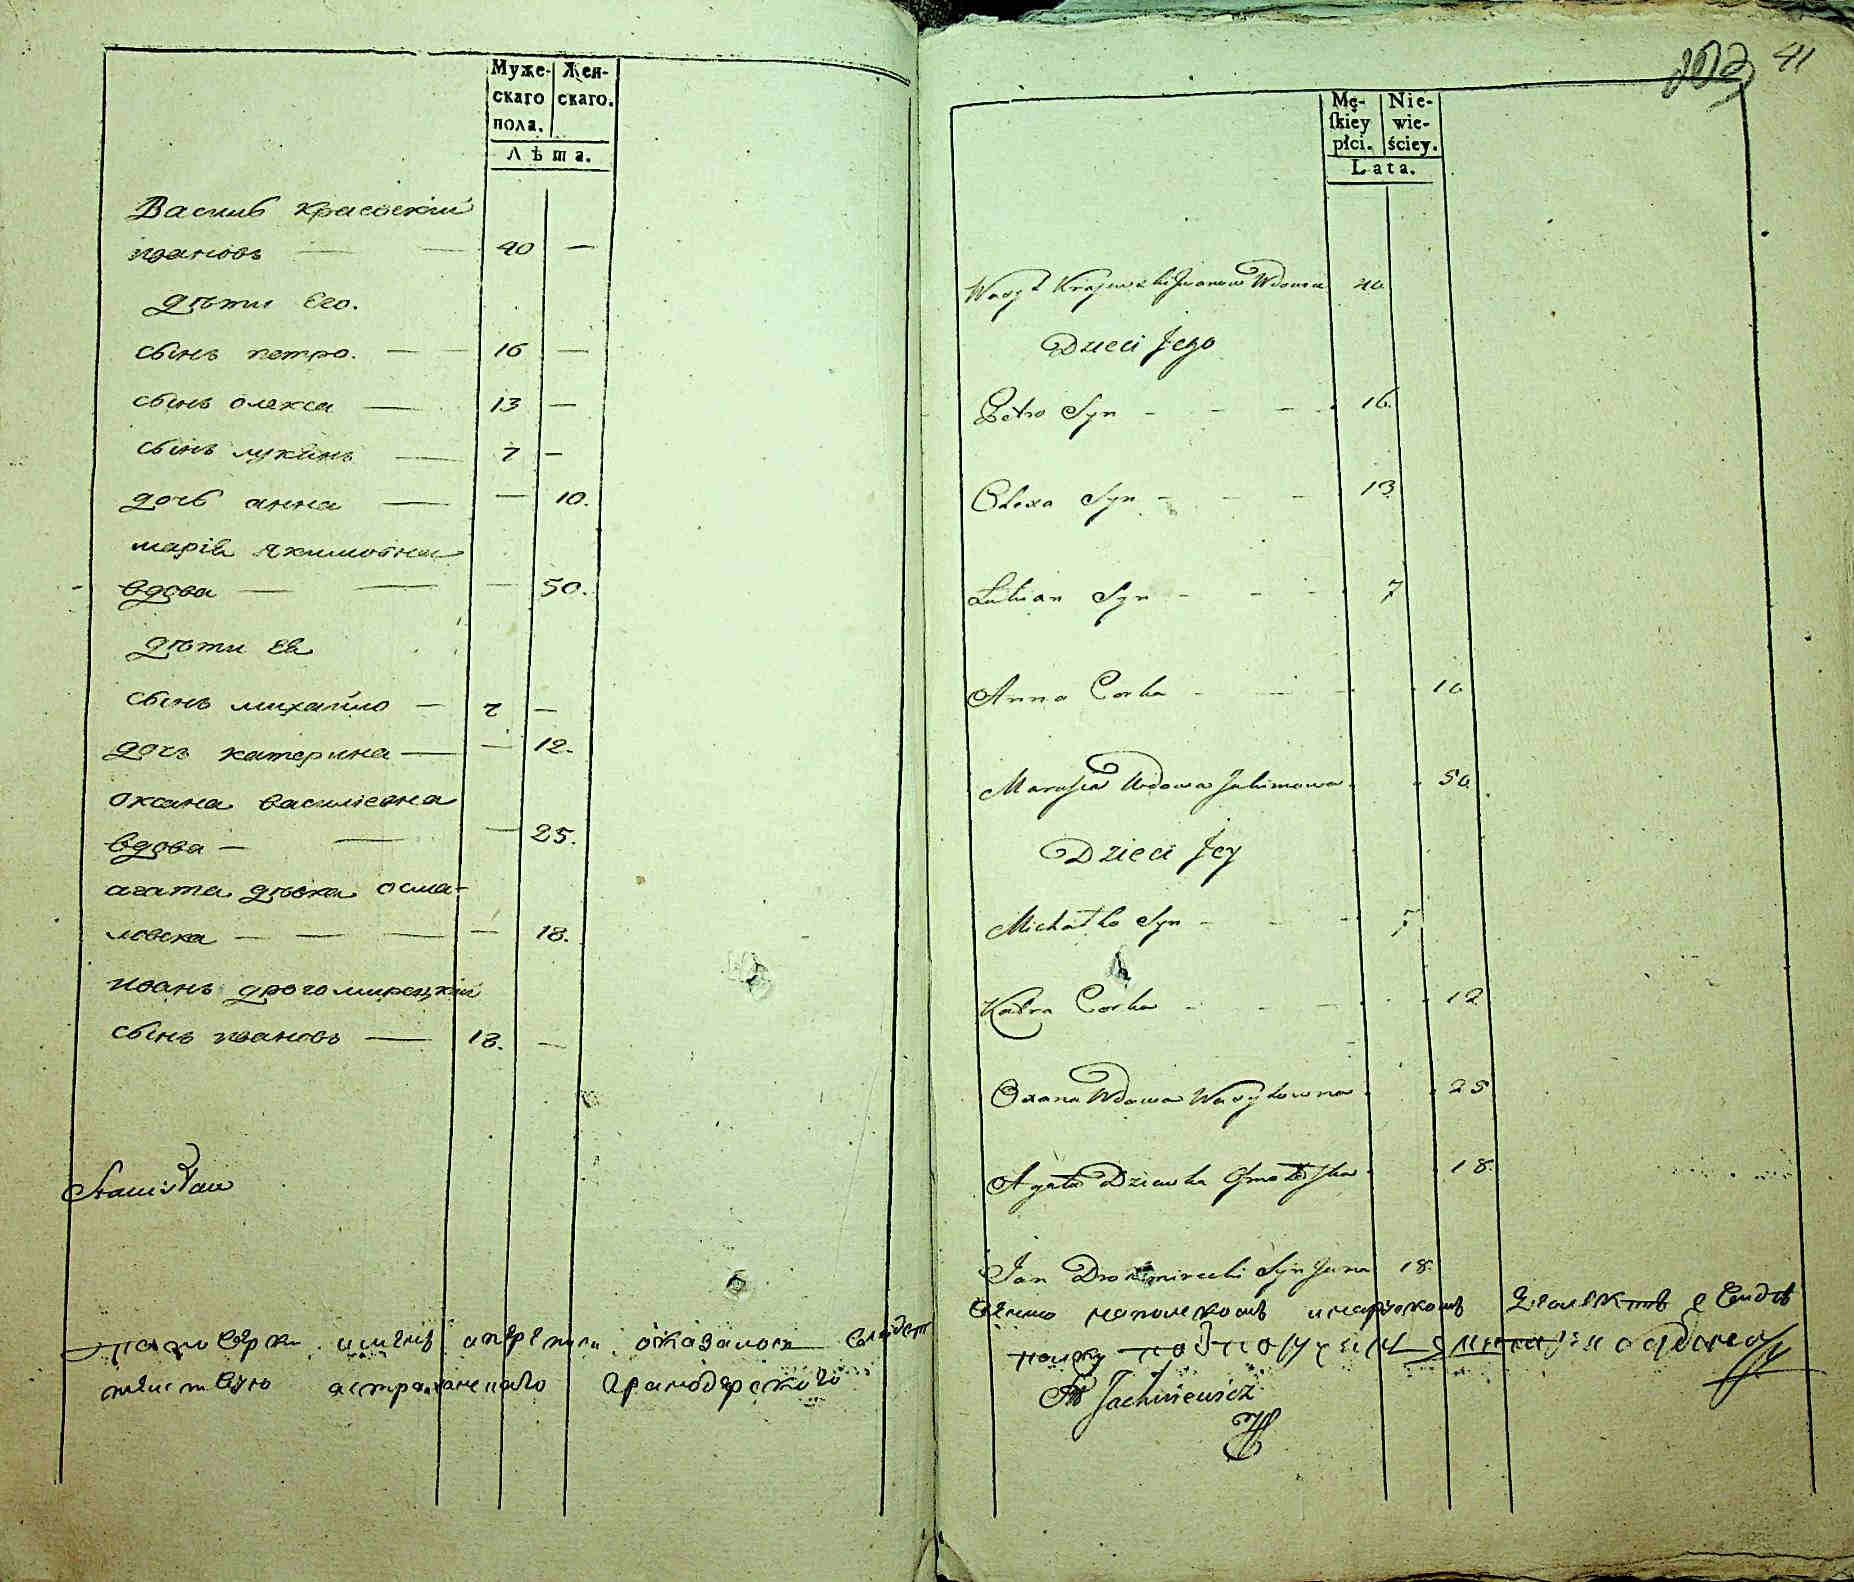 Муже- Жен-
скаго скаго.
пола.
Лѣта.
Василь Краевскій
ивановъ — — 40 —
дѣти Его.
сынъ петро. — — 16 —
сынъ олекса — 13 —
сынъ лукянъ — 7 —
дочь анна — — 10.
марія Якимовна
вдова — — — 50.
дѣти Ея
сынъ михайло — 7 —
дочь катерина — — 12.
оксана василіевна
вдова — — — 25.
агата дѣвка осма-
ловска — — — — 18.
иванъ дрогомирецкій
сынъ ивановъ — 18. —
Stanisław
оказалось
41
Mę- Nie-
skiey wie-
płci. ściey.
Lata.
Wasyl Krajewski Iwanow Wdowiec 40
Dzieci Jego
Petro Syn - - - 16.
Olexa Syn - - - 13
Lukian Syn - - - 7
Anna Corka - - - 10
Marusia Wdowa Jakimowa 50.
Dzieci Jey
Michałko Syn - - - 7
Katra Corka - - - 12
Oxana Wdowa Wasylowna 25
Agata Dziewka 18.
Jan Drohomirecki Syn Jana 18.
Jachniewicz